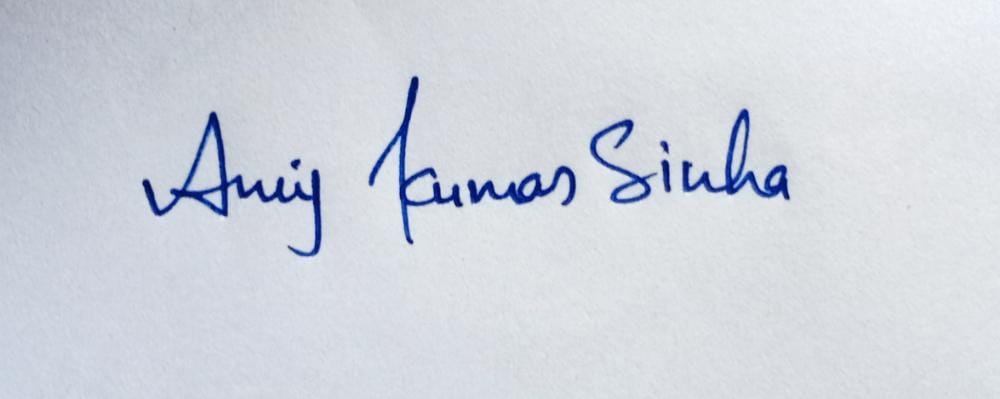 Anuj Kumar Sinha